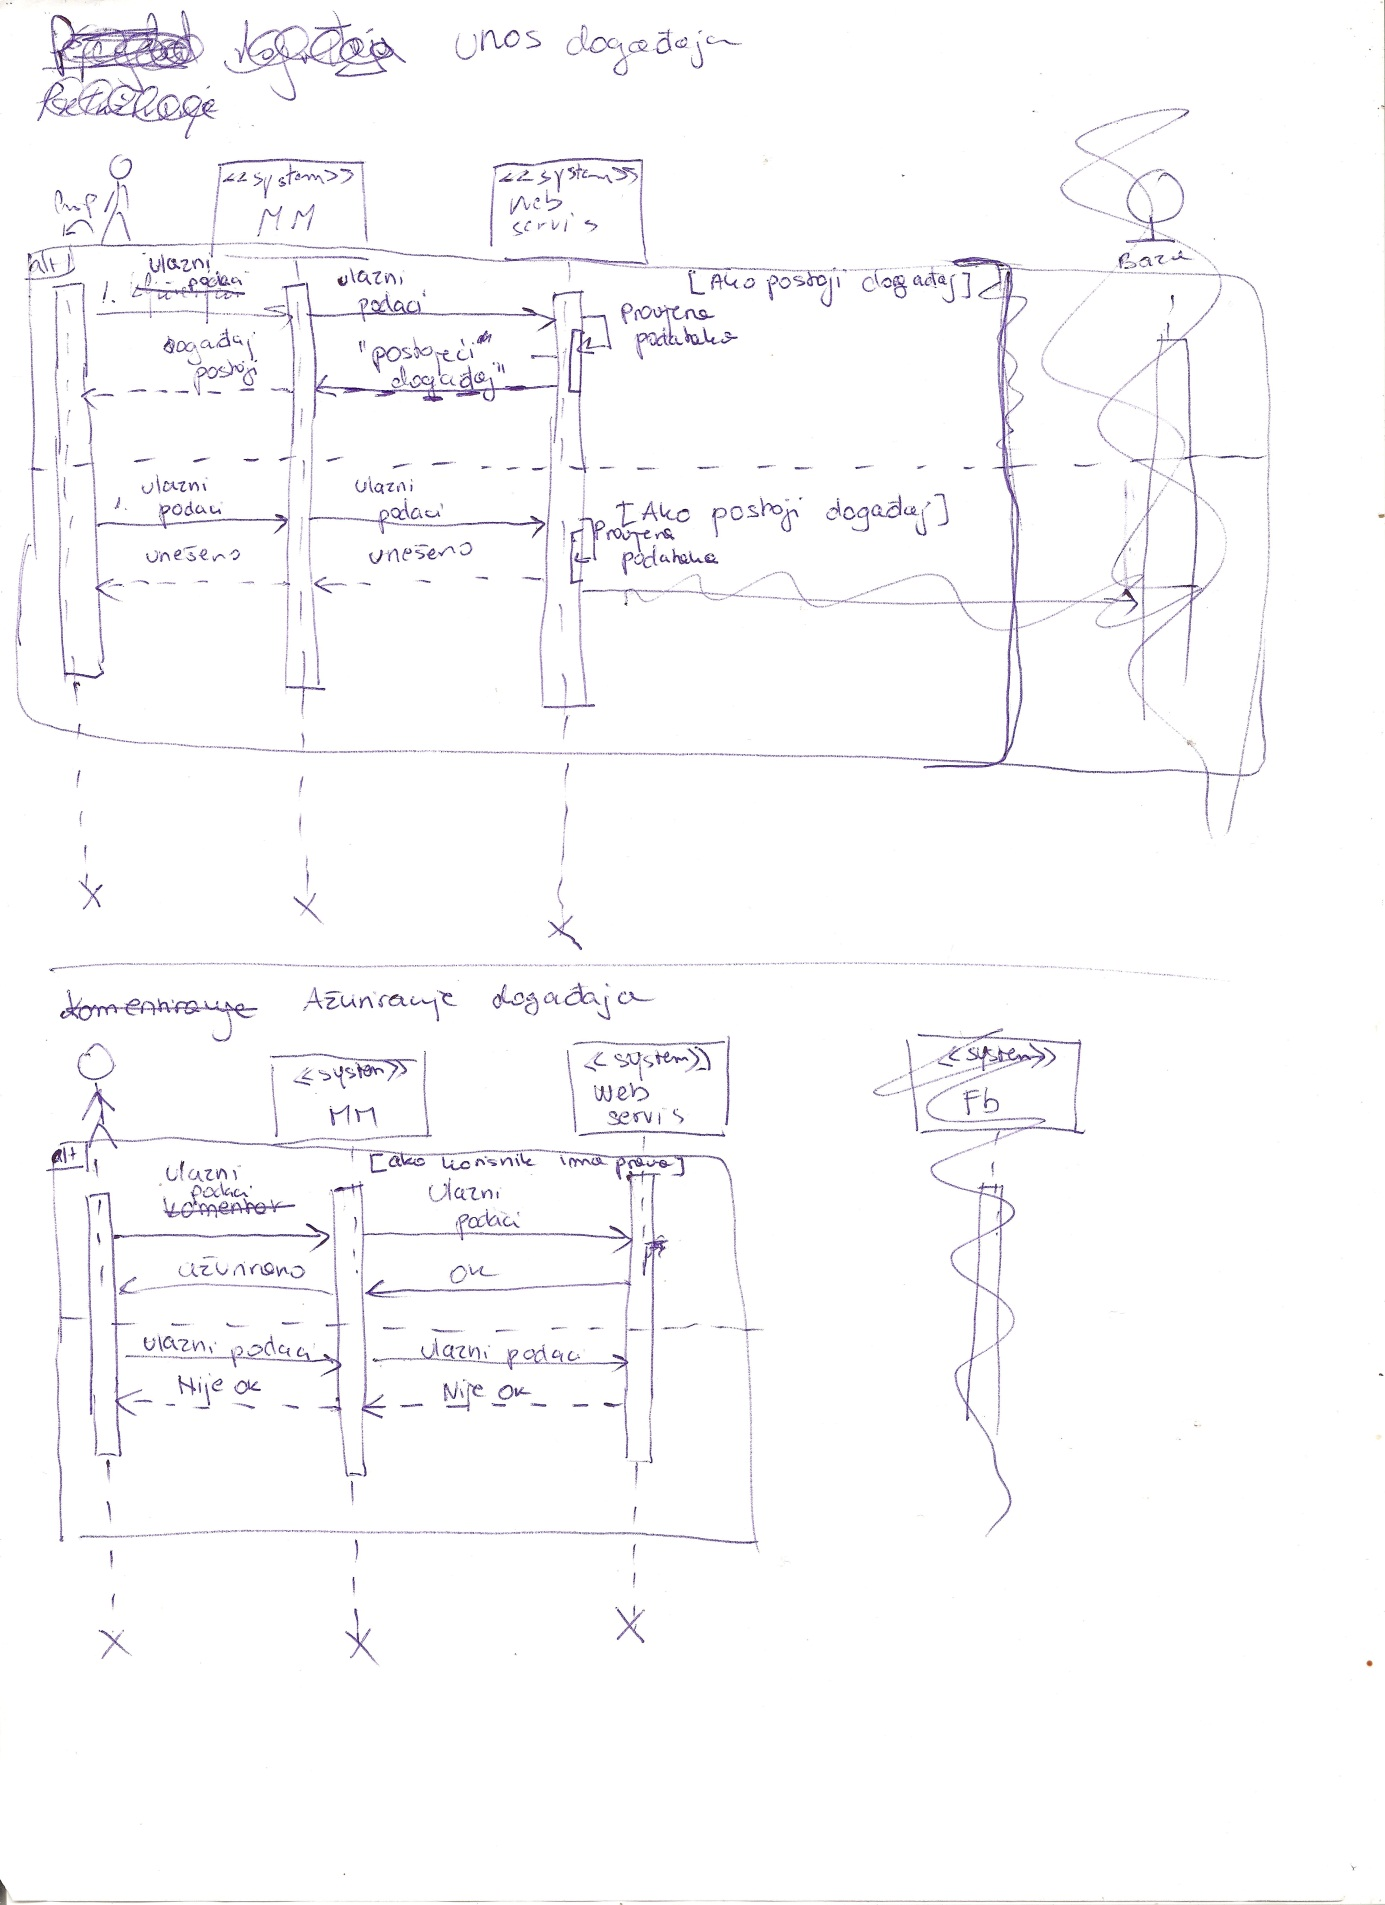 unos događaja
<<system>>
MM
<<system>>
Web
servis
Baza
alt
ulazni
podaci
1.
ulazni
podaci
[Ako postoji događaj]
Provjera
podataka
događaj
postoji
"postojeći
događaj"
ulazni
1. podaci
ulazni
podaci
[Ako postoji događaj]
Provjera
podataka
unešeno
unešeno
Komentiranje Ažuriranje događaja
<<system>>
MM
<<system>>
Web
servis
<<system>>
Fb
alt
[ako korisnik ima prava]
Ulazni
podaci
komentar
Ulazni
podaci
ažurirano
OK
ulazni podaci
ulazni podaci
Nije ok
Nije OK